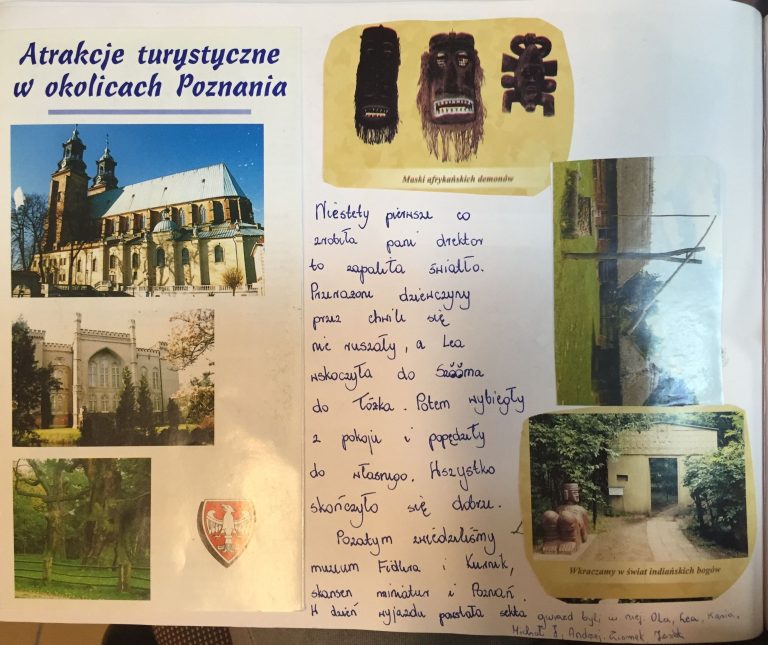 Atrakcje turystyczne
w okolicach Poznania
Maski afrykańskich demonów
Niestety pierwsze co
zrobiła pani drektor
to zapaliła światło.
Przerażone dziewczyny
przez chwile się
nie ruszały, a Lea
wskoczyła do
do łóżka. Potem wybiegły
z pokoju i popędziły
do własnego. Wszystko
skończyło się dobrze.
Pozatym zwiedziliśmy
muzeum Fidlera i Kurnik,
skansen miniatur i Poznań.
W dzień wyjazdu powstała sekta gwiazd byli w niej. Ola, Lea, Kasia,
Michał J, Andzej, Ziomek, Jasiek
Wkraczamy w świat indiańskich bogów